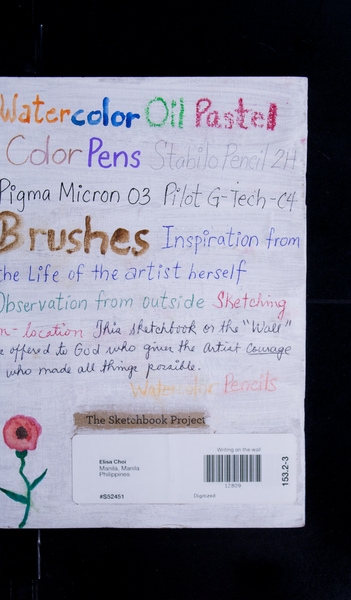 Watercolor Oil Pastel
Color Pens Stabilo Pencil 2H
Pigma Micron 03 Pilot G-Tech-C4
Brushes Inspiration from
the Life of the artist herself
Observation from outside Sketching
n-location This sketchbook on the "Wall"
e offered to God who gives the Artist Courage
who made all things possible.
Pencils
The Sketchbook Project
Writing on the wall
Elisa Choi
Manila, Manila
Philippines
12809
#S52451
Digitized
153.2-3